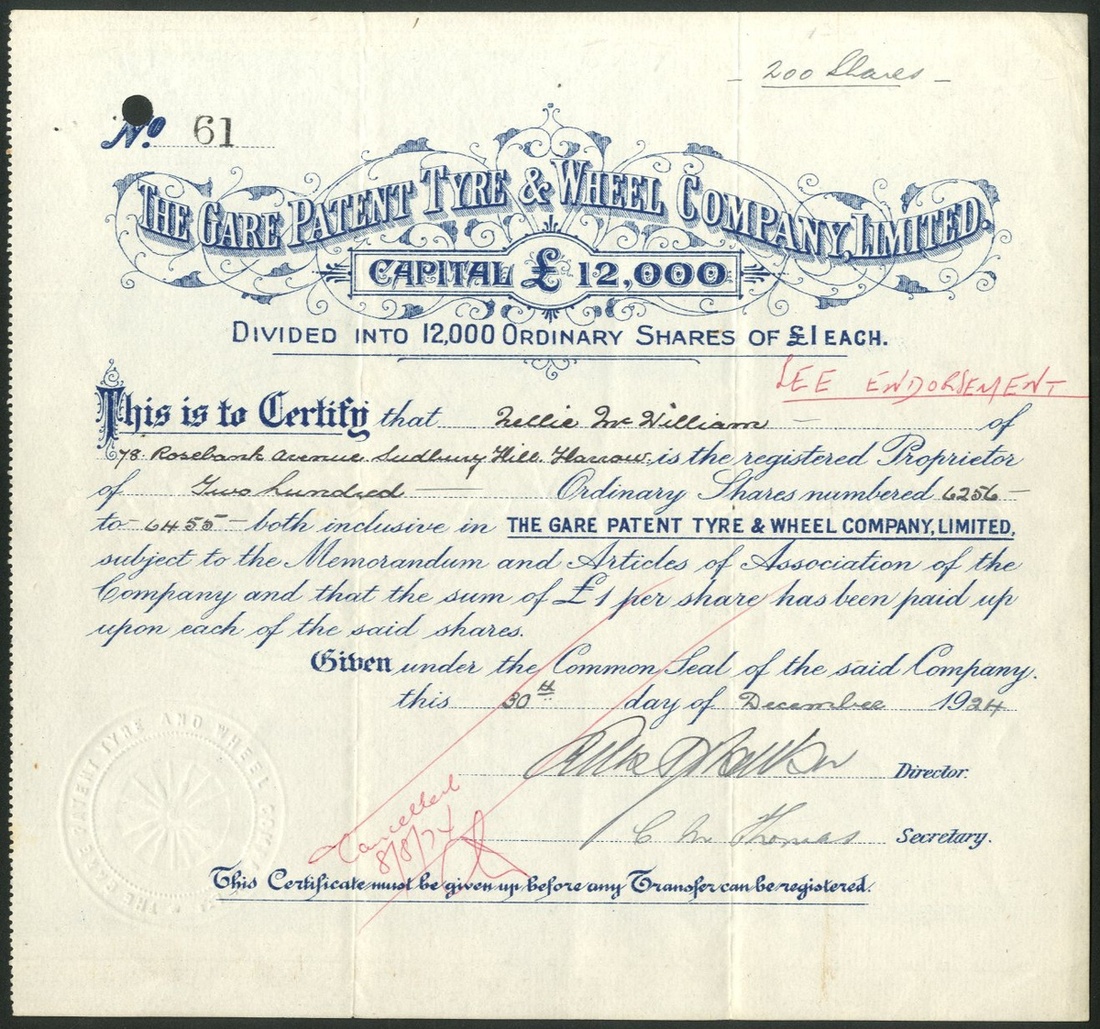 - 200 Shares -
No. 61
THE GARE PATENT TYRE & WHEEL COMPANY, LIMITED.
CAPITAL £ 12,000
DIVIDED INTO 12,000 ORDINARY SHARES OF £1 EACH.
SEE ENDORSEMENT
This is to Certify that Nellie McWilliam of
78. Rosebank Avenue. Sudbury Hill. Harrow. is the registered Proprietor
of Two hundred Ordinary Shares numbered 6256 -
to - 6455 - both inclusive in THE GARE PATENT TYRE & WHEEL COMPANY, LIMITED,
subject to the Memorandum and Articles of Association of the
Company and that the sum of £1 per share has been paid up
upon each of the said shares.
Given under the Common Seal of the said Company.
this 30th day of December 1924
Director.
Cancelled
8/8/74
C M Thomas Secretary.
THE GARE PATENT TYRE AND WHEEL
This Certificate must be given up before any Transfer can be registered.